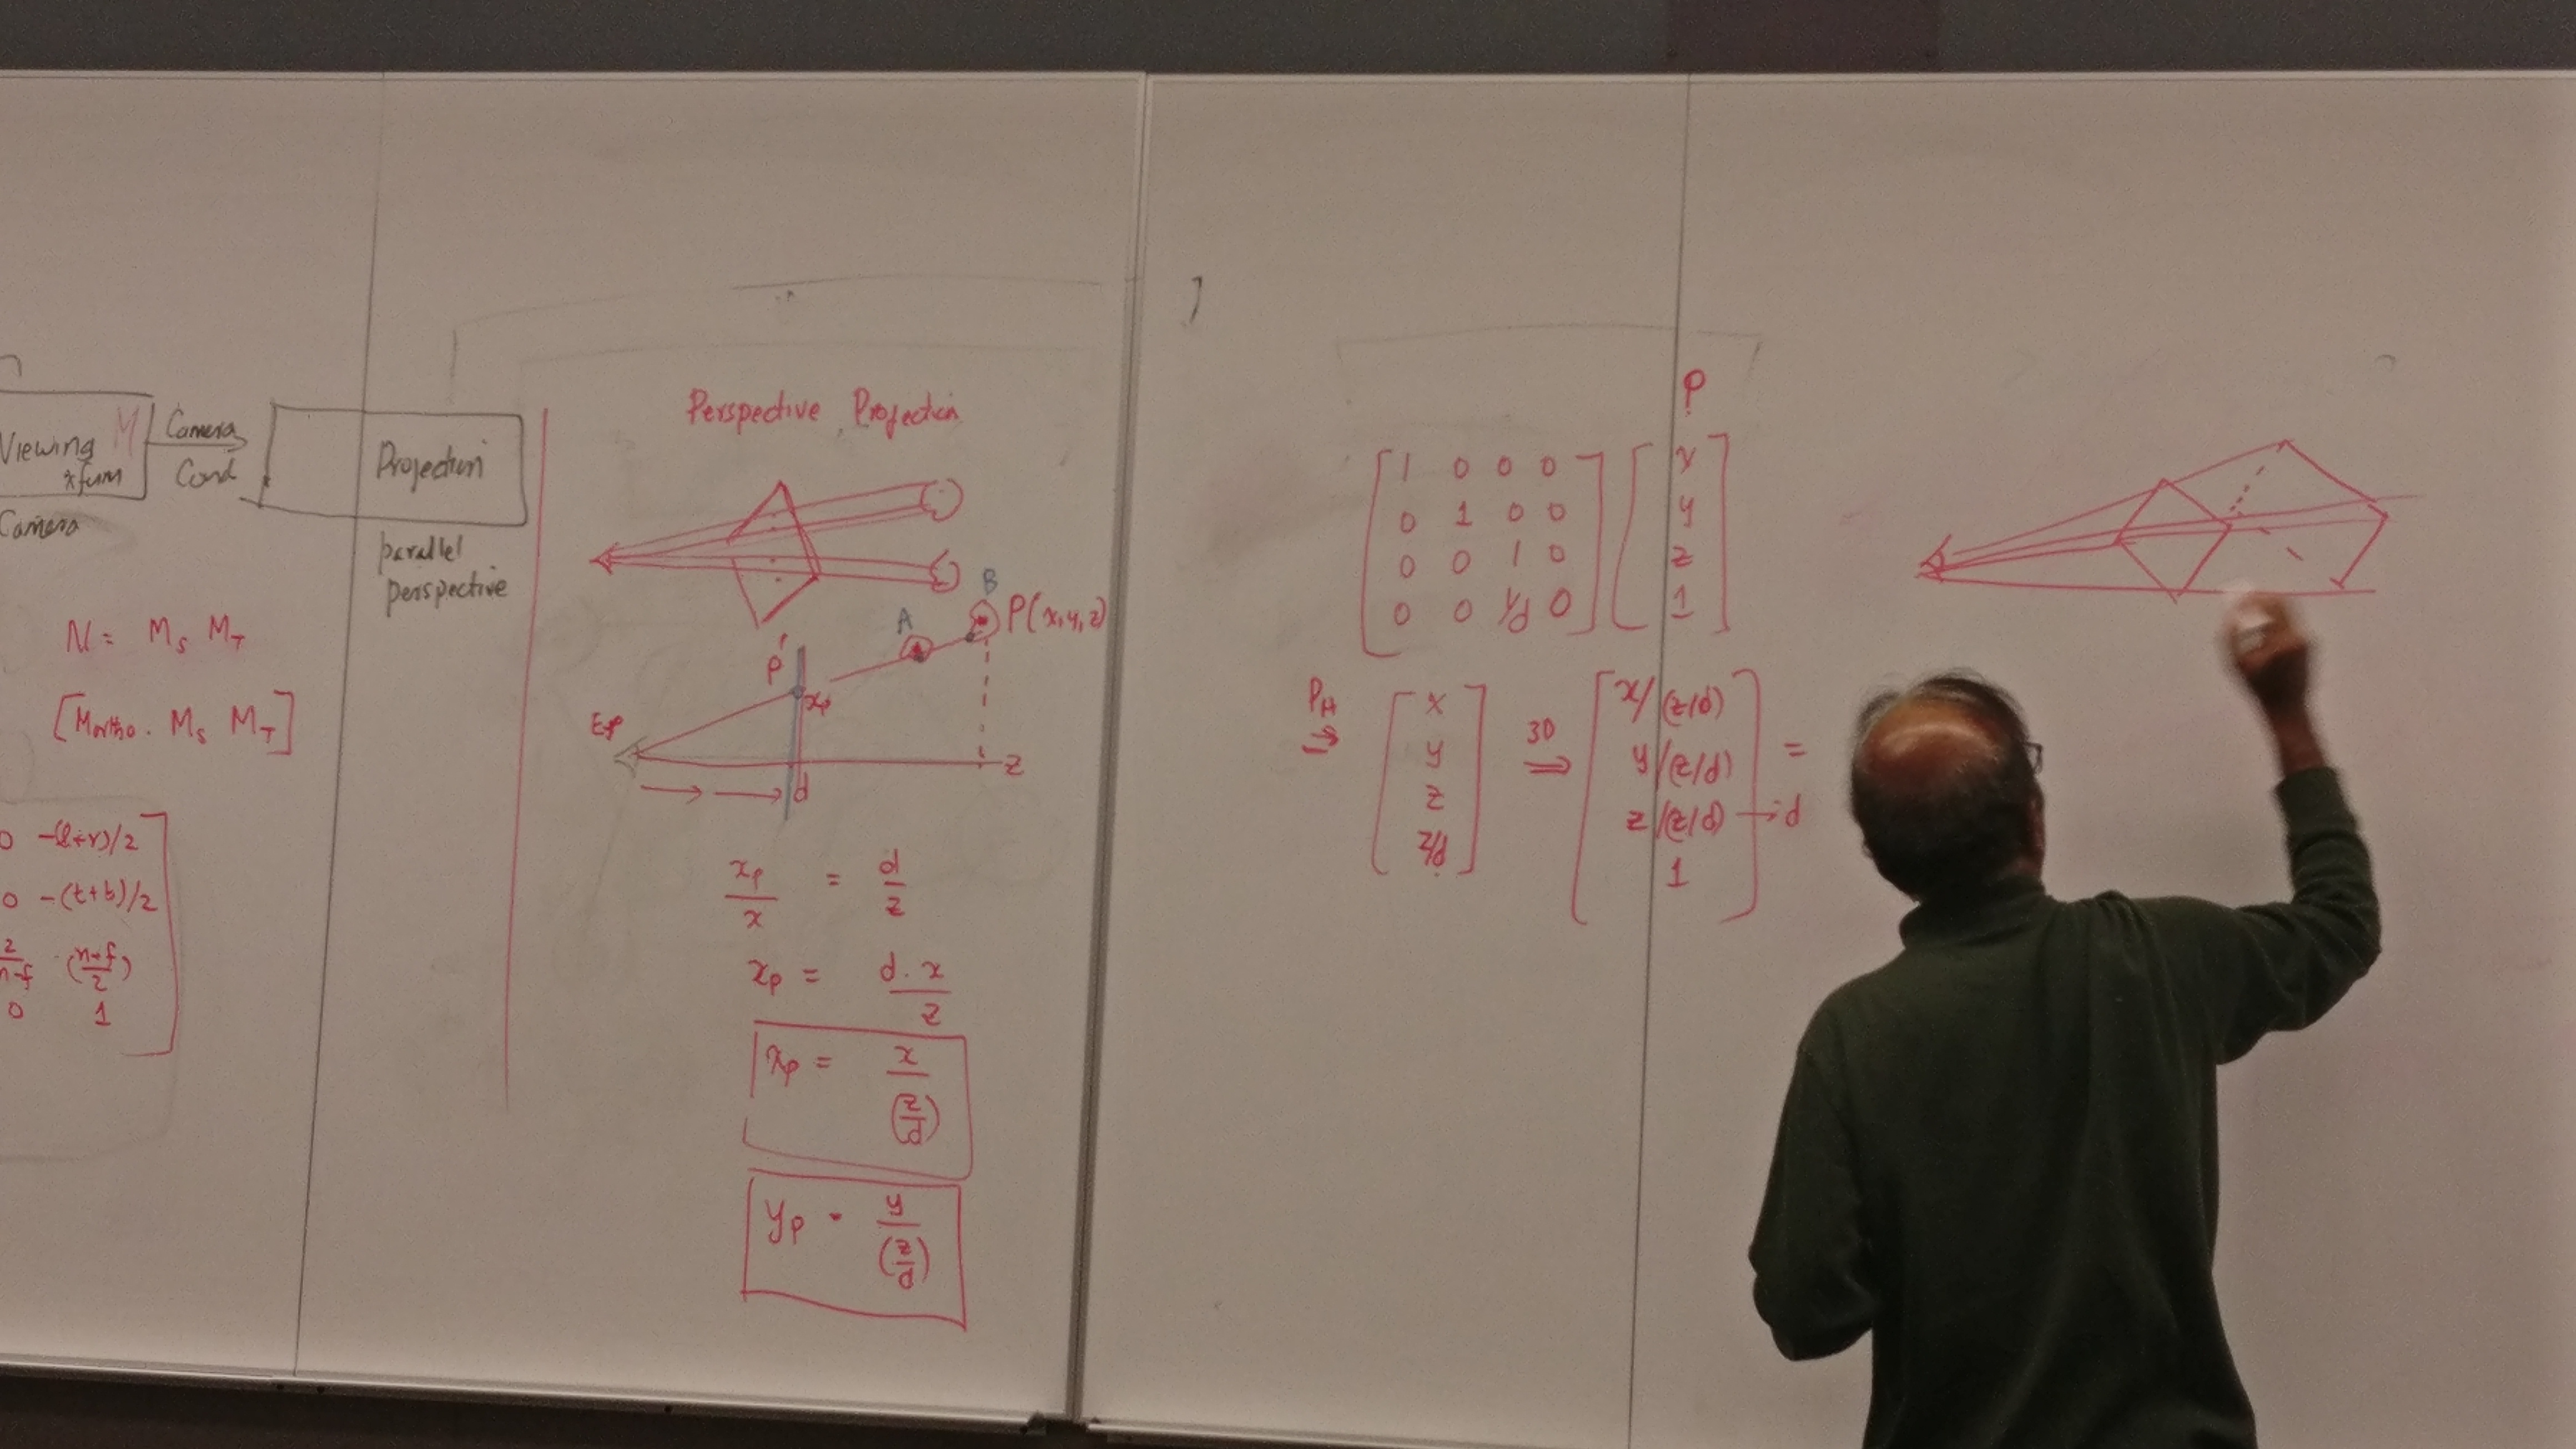 Viewing M
xfum
Camera
Camera
Cord
Projection
parallel
perspective
N = M_S M_T
[M_ortho . M_S M_T]
0 -(l+r)/2
0 -(t+b)/2
2/n-f (n+f/2)
0 1
Perspective Projection
B
A
P(x,y,z)
P'
x_p
z
d
x_p/x = d/z
x_p = d.x/z
x_p = x/(z/d)
y_p = y/(z/d)
P
1 0 0 0 x
0 1 0 0 y
0 0 1 0 z
0 0 1/d 0 1
P_H → [x y z z/d]
3D ⇒ [x/(z/d) y/(z/d) z/(z/d) 1] =
→ d